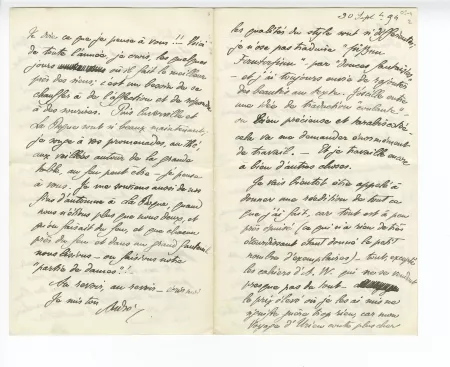 Te dire ce que je pense à vous !!! Voici
de toute l'année, je crois, les quelques
jours où il fait le meilleur
près des siens ; c'est un besoin de se
chauffer à de l'affection et de répondre
à des sourires. Puis Cuverville et
La Roque sont si beaux maintenant ;
je songe à vos promenades, au thé,
aux veillées autour de la grande
table, au feu peut-être – je pense
à vous. Je me souviens aussi de nos
fins d'automne à La Roque, quand
nous n'étions plus que nous deux, et
qu'on faisait du feu, et que chacun
près du feu et dans un grand fauteuil
nous lisions – ou faisions notre
"partie de dames" !
Au revoir, au revoir –
Je suis ton
André.
30 Sept. 94
les qualités du style sont si différentes,
je n'ose pas traduire
par "douces fantaisies"
– et j'ai toujours envie de rajouter
des beautés au texte. J'oscille entre
une idée de traduction
ou bien précieuse et
cela va me demander énormément
de travail. – Et je travaille encore
à bien d'autres choses.
Je vais bientôt être appelé à
donner une reddition de tout ce
que j'ai fait, car tout est à peu
près épuisé (ce qui n'a rien de très
étourdissant étant donné le petit
nombre d'exemplaires) – tout, excepté
les cahiers d'A. W. qui ne se vendent
presque pas du tout –
le prix élevé où je les ai mis ne
rien, car mon
Voyage d'Urien coûte plus cher